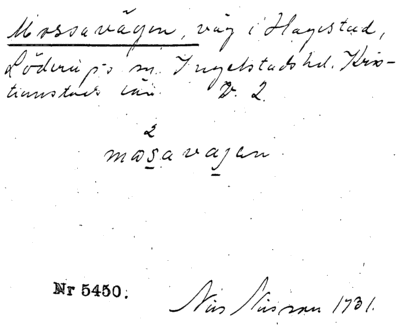 Mossavägen, väg i Hagestad,
Löderups sn. Ingelstads hd. Kris-
tianstads län. V. 2.
2
mosavagen
Nr 5450.
Nils Nilsson 1731.